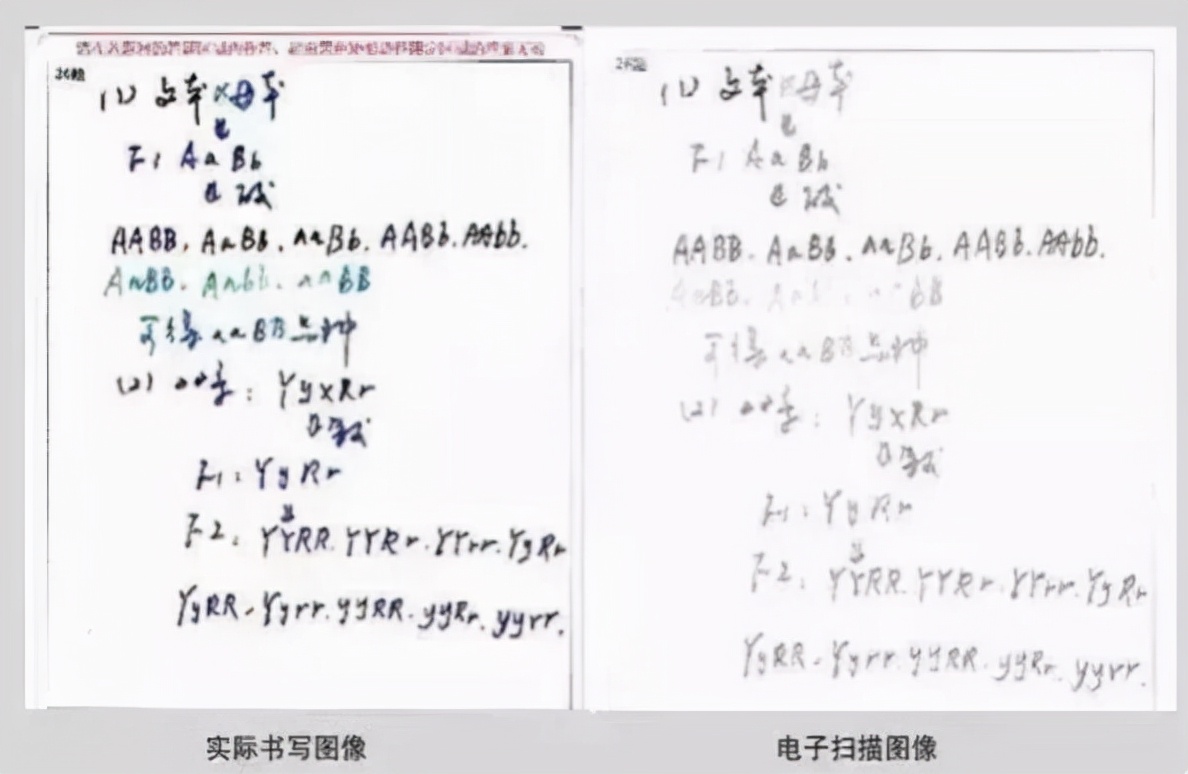 26题
(1) 父本×母本
F1 AaBb
AABB. AaBb. aaBb. AABb. AAbb.
AaBB. Aabb. aaBB
可得aaBB品种
(2) : YyxRr
F1: YyRr
F2: YYRR. YYRr. YYrr. YyRr
YyRR. Yyrr. yyRR. yyRr. yyrr.
实际书写图像
26题
(1) 父本×母本
F1 AaBb
AABB. AaBb. aaBb. AABb. AAbb.
可得aaBB品种
(2) : YyxRr
F1: YyRr
F2: YYRR. YYRr. YYrr. YyRr
YyRR. Yyrr. yyRR. yyRr. yyrr.
电子扫描图像